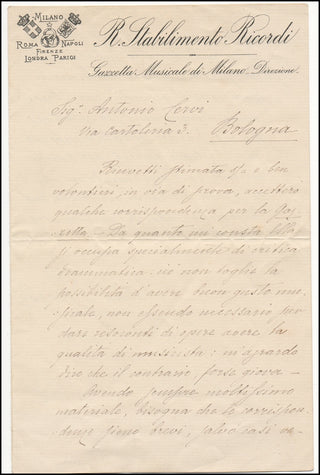 MILANO
ROMA NAPOLI
FIRENZE
LONDRA PARIGI
R. Stabilimento Ricordi
Gazzetta Musicale di Milano. Direzione.
Sigr. Antonio Cervi
Via Cartoleria 3. Bologna
Ricevetti stimata s/. e ben
volontieri, in via di prova, accetterò
qualche corrispondenza per la Gaz-
zetta. Da quanto mi consta Ella
si occupa specialmente di critica
drammatica: ciò non toglie la
possibilità d'avere buon gusto mu-
sicale, non essendo necessario per
dari resoconti di opere avere la
qualità di musicista: m'azzardo
dire che il contrario forse giova.
Avendo sempre moltissimo
materiale, bisogna che le corrispon-
denze sieno brevi, salvo casi ec-